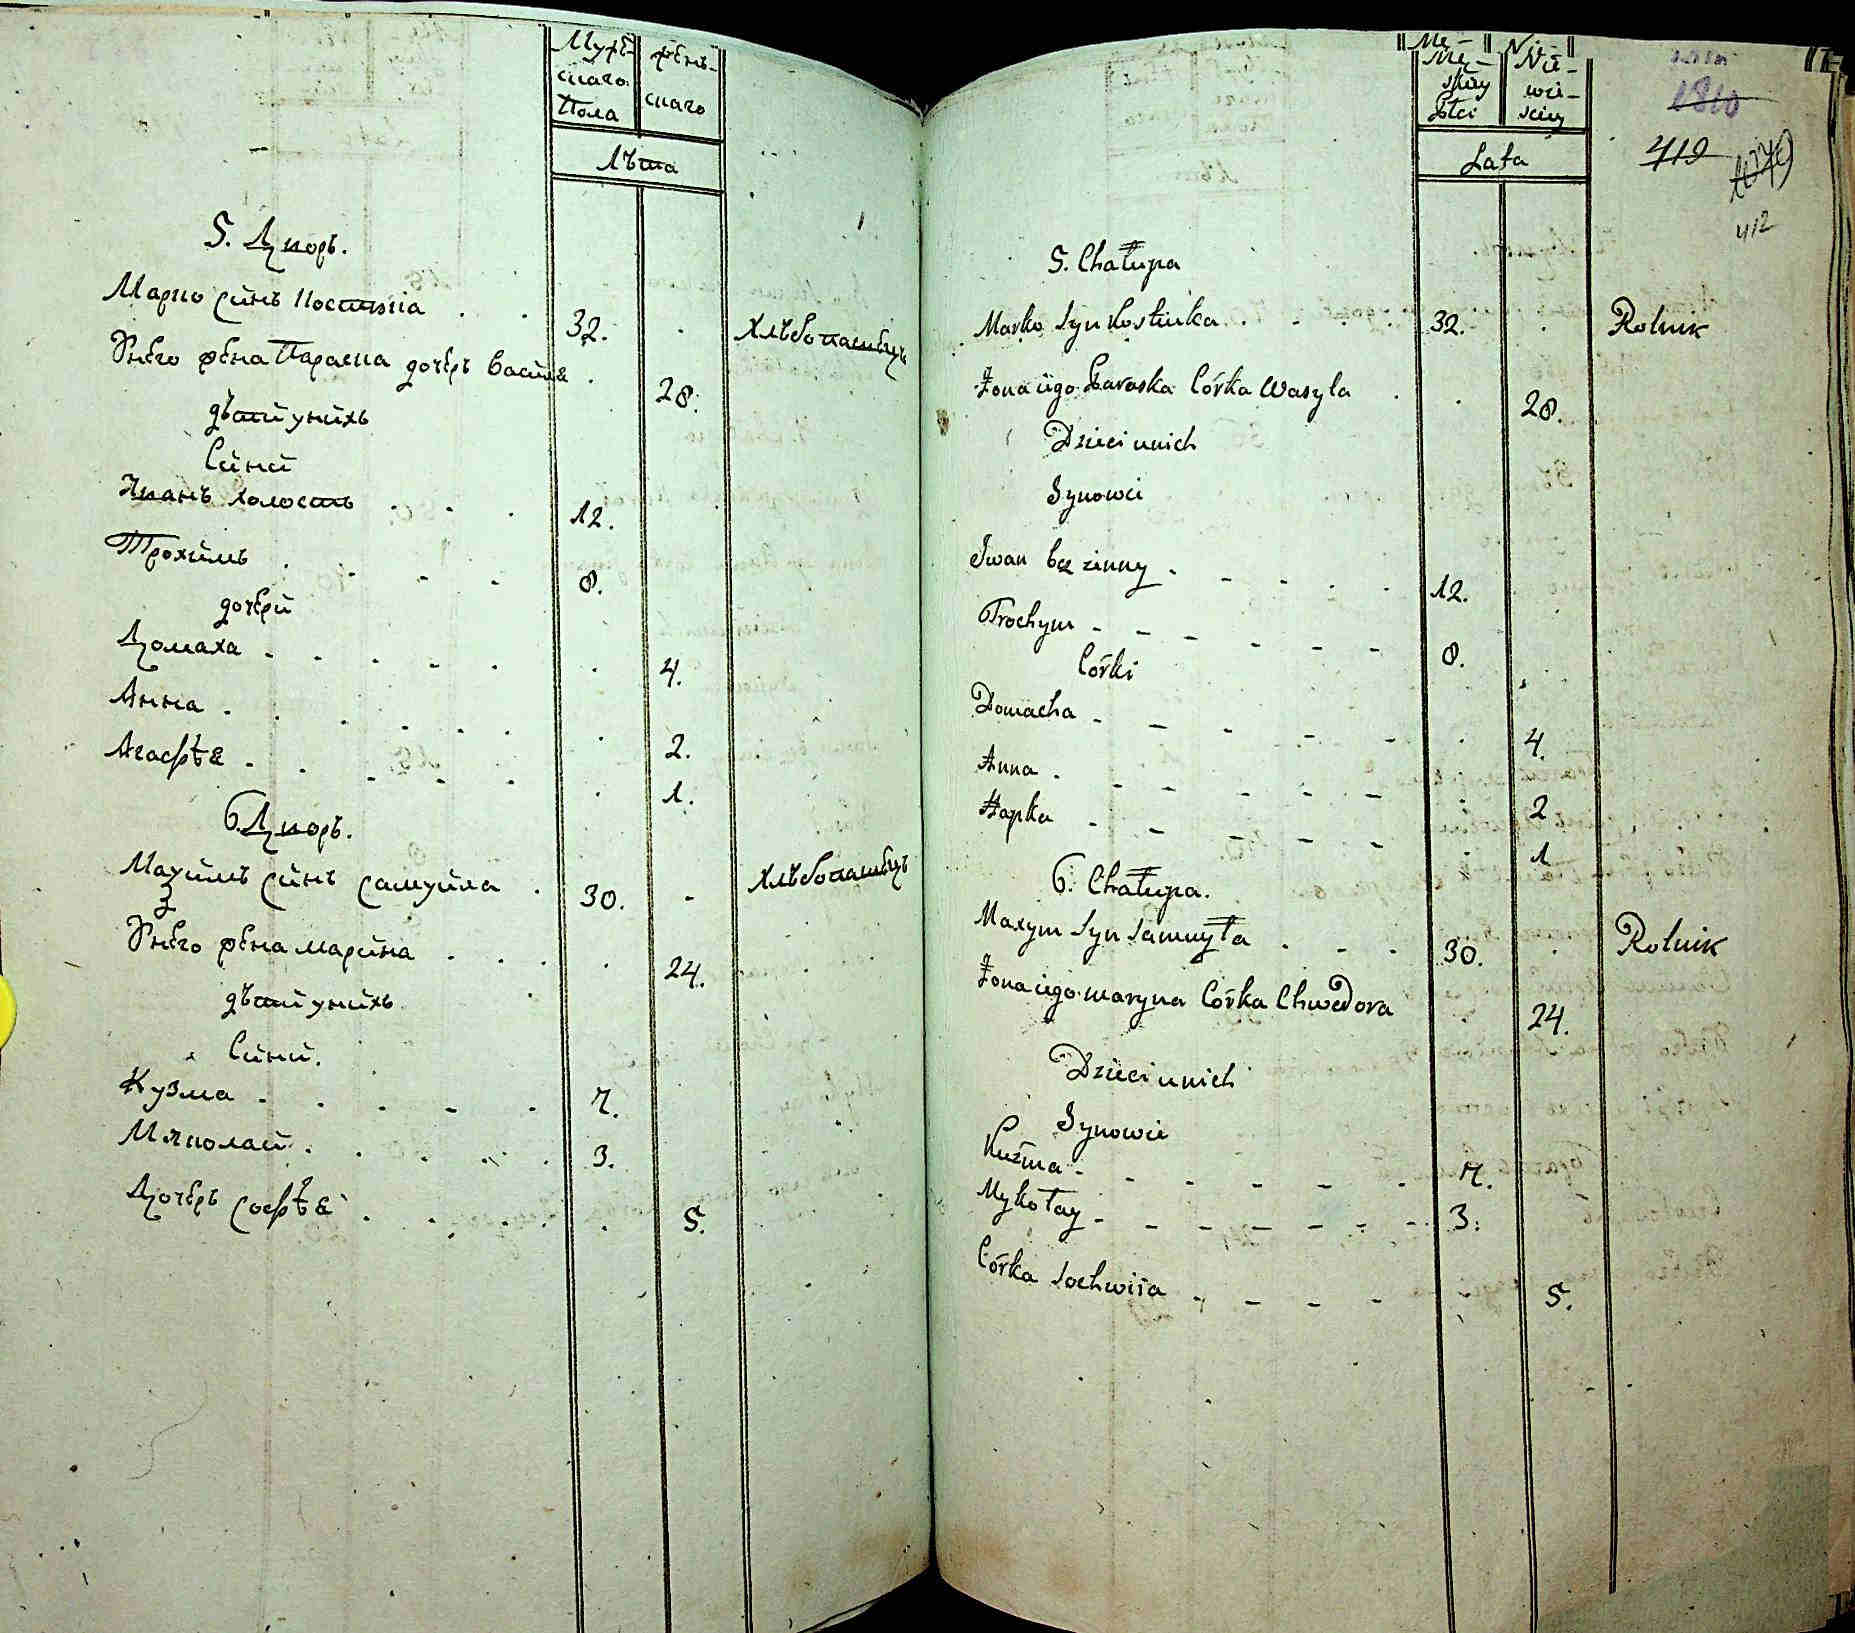 Мужē-
скаго
Пола
женъ-
скаго
лѣта
5. Дворъ.
Марко синъ Костюка . . 32. . Хлѣбопашецъ
У него жена Параска дочерь Василя . 28.
дѣти у нихъ
Сини
Иванъ холостъ . . . 12.
Трохимъ . - - - 8.
дочери
Домаха - . . . . . 4.
Анна . . . . . . . 2.
Агафѣя - . . . . . 1.
6. Дворъ.
Махимъ синъ Самуйла . 30. - Хлѣбопашецъ
У него жена Марина . . . . 24.
дѣти у нихъ
Сини.
Кузма - . . . . 7.
Миколай . . . . . 3.
Дочерь Софѣя . . . . . 5.
Mę- Nie-
Mę-
skiey
Płci
Nie-
wie-
sciey
Lata
1810
419
412
5. Chałupa
Marko Syn Kostiuka . . . 32. . Rolnik
Żona iigo Paraska Córka Wasyla . . 28.
Dzieci u nich
Synowie
Iwan bez zinny - - - . . 12.
Trochym - - - - - - 8.
Córki
Domacha - - - - - - . 4.
Anna - - - - - - . 2
Hapka - - - - - . 1
6. Chałupa.
Maxym Syn Samuyła . - - 30. . Rolnik
Żona iigo Maryna Córka Chwedora . 24.
Dzieci u nich
Synowie
Kuźma - - - - - - 7.
Mykołay - - - - - - - 3.
Córka Sochwiia - - - - 5.